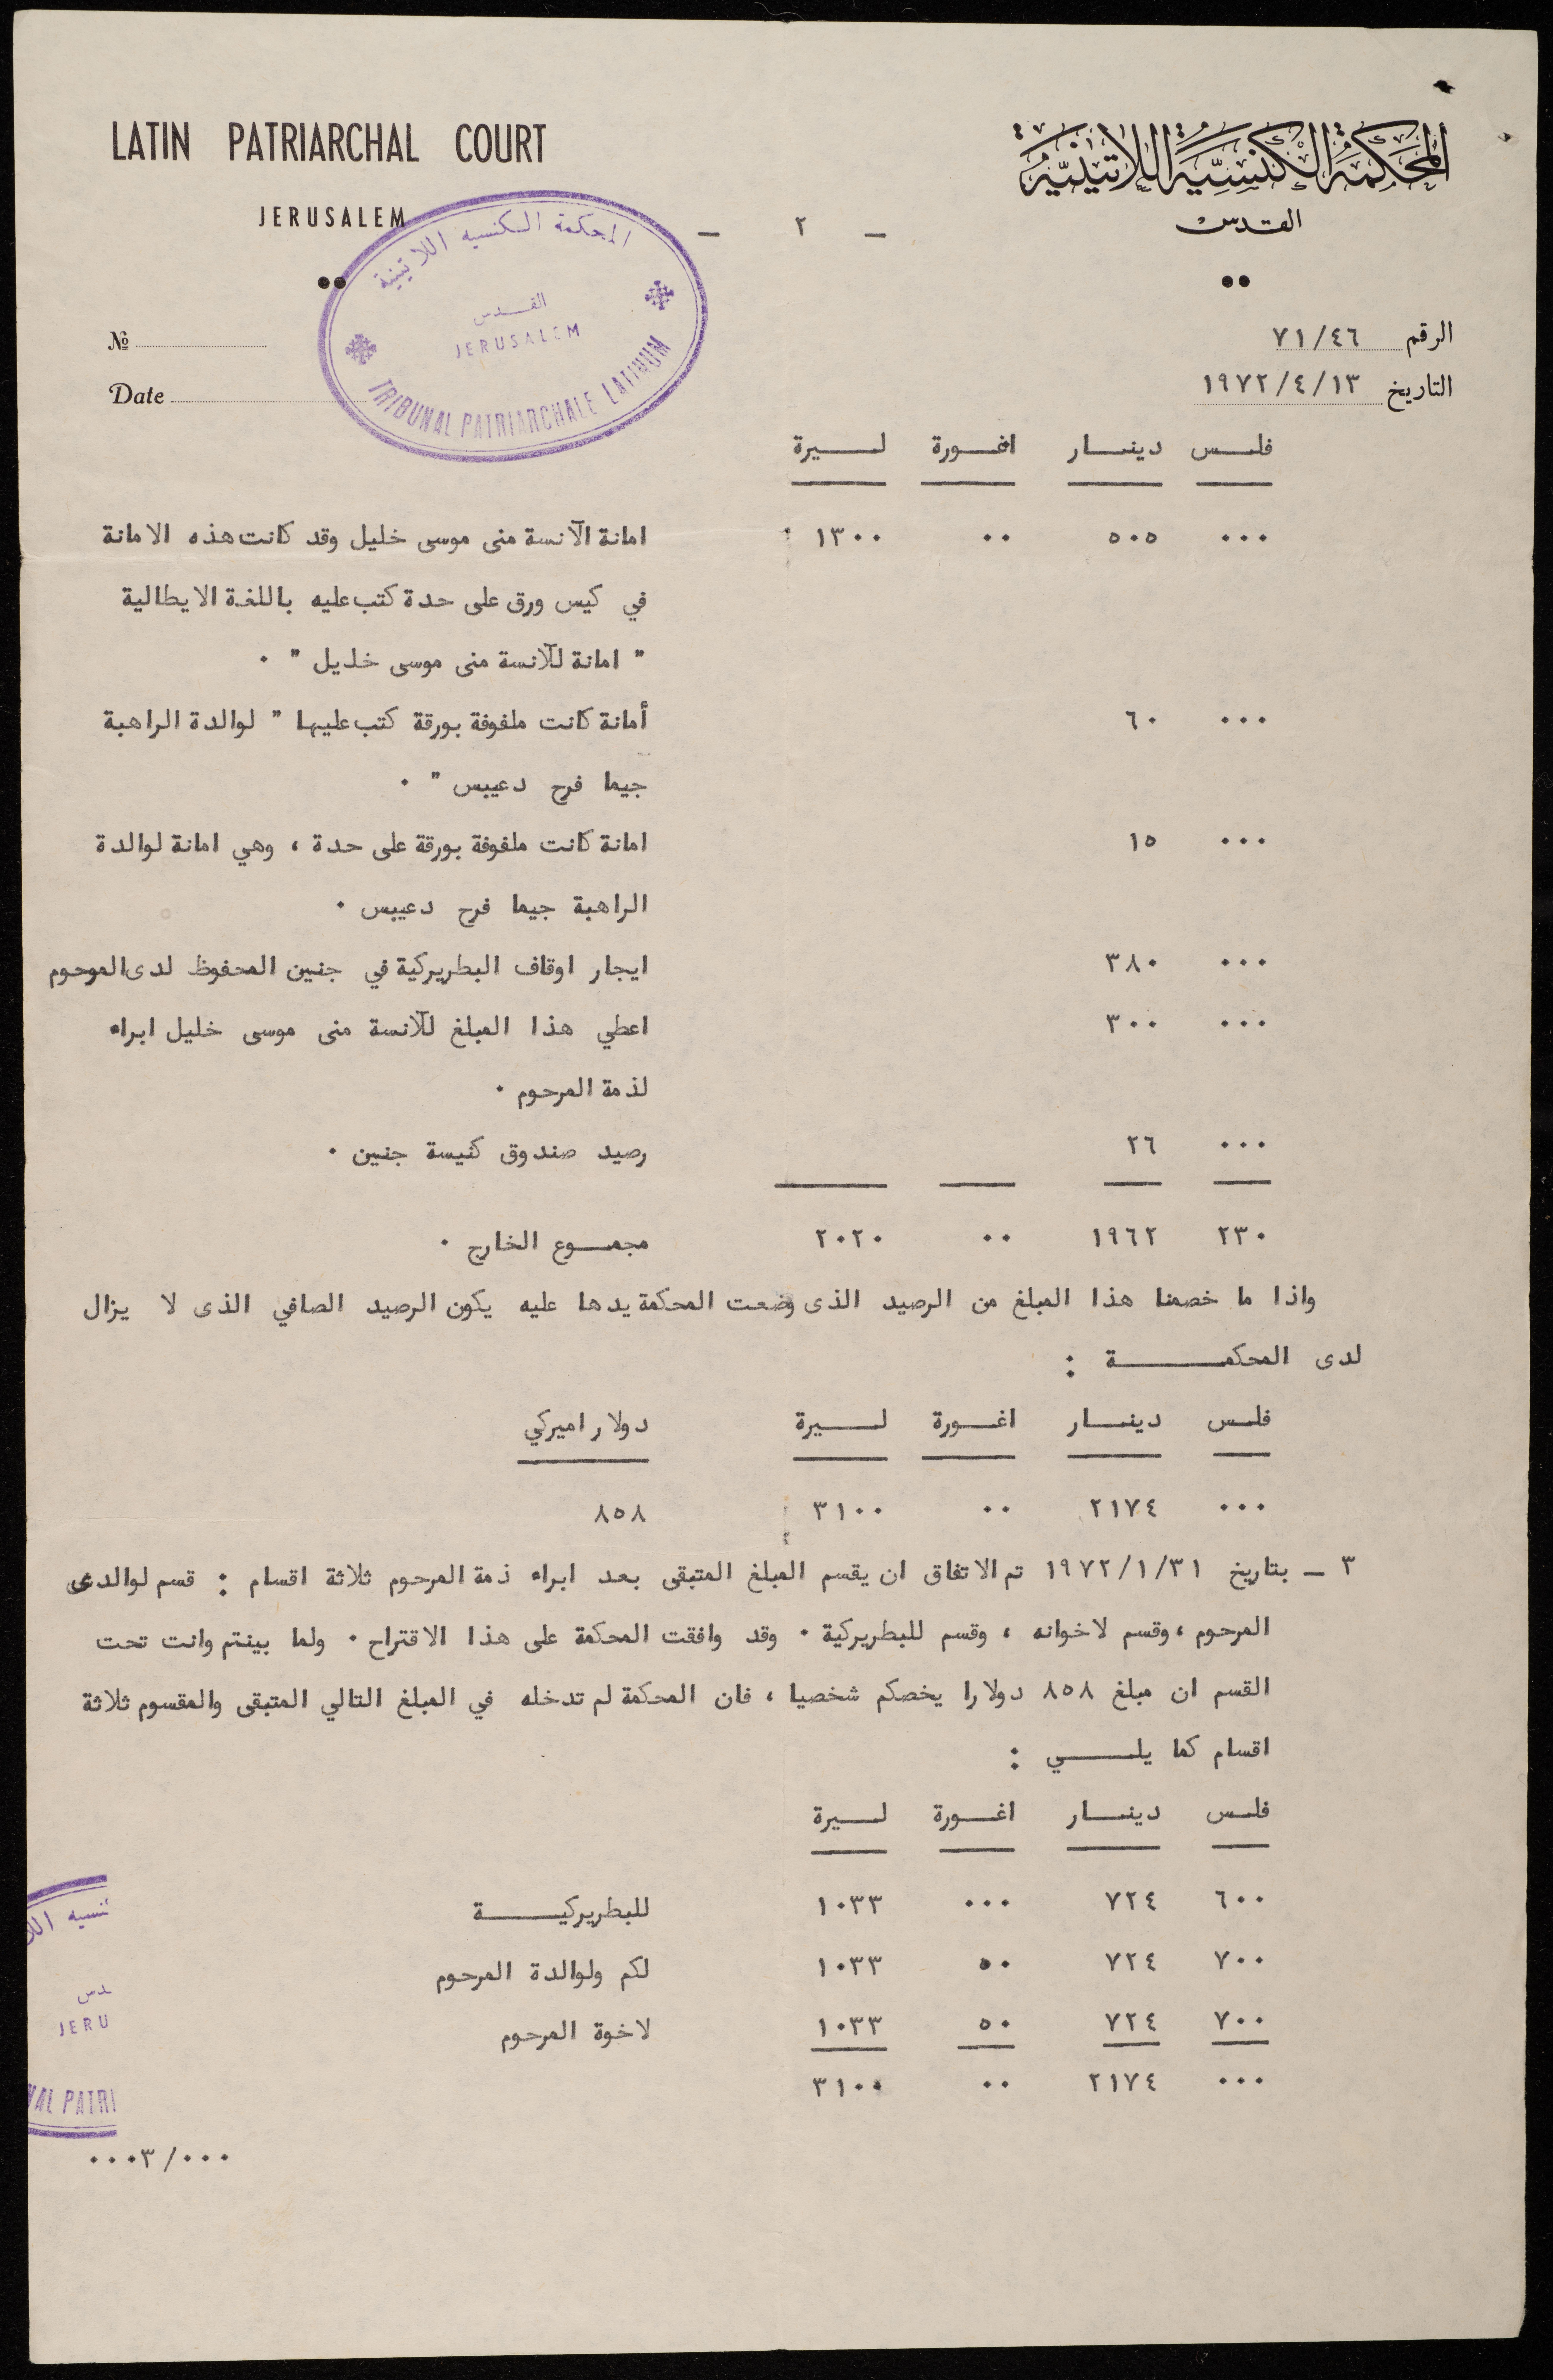 LATIN PATRIARCHAL COURT
JERUSALEM
المحكمة الكنسية اللاتينية
القدس
- ٢ -
المحكمة الكنسيه اللاتينية
القدس
JERUSALEM
TRIBUNAL PATRIARCHALE LATINUM
№
Date
الرقم ٧١/٤٦
التاريخ ١٩٧٢/٤/١٣
فلس دينار اغورة ليرة
٠٠٠ ٥٠٥ ٠٠ ١٣٠٠ امانة الآنسة منى موسى خليل وقد كانت هذه الامانة
في كيس ورق على حدة كتب عليه باللغة الايطالية
" امانة للآنسة منى موسى خليل " ٠
٠٠٠ ٦٠ أمانة كانت ملفوفة بورقة كتب عليها " لوالدة الراهبة
جيما فرح دعيبس " ٠
٠٠٠ ١٥ امانة كانت ملفوفة بورقة على حدة ، وهي امانة لوالدة
الراهبة جيما فرح دعيبس ٠
٠٠٠ ٣٨٠ ايجار اوقاف البطريركية في جنين المحفوظ لدى الموحوم
٠٠٠ ٣٠٠ اعطي هذا المبلغ للآنسة منى موسى خليل ابراء
لذمة المرحوم ٠
٠٠٠ ٢٦ رصيد صندوق كنيسة جنين ٠
٢٣٠ ١٩٦٢ ٠٠ ٢٠٢٠ مجموع الخارج ٠
واذا ما خصمنا هذا المبلغ من الرصيد الذى وضعت المحكمة يدها عليه يكون الرصيد الصافي الذى لا يزال
لدى المحكمة :
فلس دينار اغورة ليرة دولار اميركي
٠٠٠ ٢١٧٤ ٠٠ ٣١٠٠ ٨٥٨
٣ - بتاريخ ١٩٧٢/١/٣١ تم الاتفاق ان يقسم المبلغ المتبقى بعد ابراء ذمة المرحوم ثلاثة اقسام : قسم لوالدى
المرحوم ، وقسم لاخوانه ، وقسم للبطريركية ٠ وقد وافقت المحكمة على هذا الاقتراح ٠ ولما بينتم وانت تحت
القسم ان مبلغ ٨٥٨ دولارا يخصكم شخصيا ، فان المحكمة لم تدخله في المبلغ التالي المتبقى والمقسوم ثلاثة
اقسام كما يلي :
فلس دينار اغورة ليرة
٦٠٠ ٧٢٤ ٠٠٠ ١٠٣٣ للبطريركية
٧٠٠ ٧٢٤ ٥٠ ١٠٣٣ لكم ولوالدة المرحوم
٧٠٠ ٧٢٤ ٥٠ ١٠٣٣ لاخوة المرحوم
٠٠٠ ٢١٧٤ ٠٠ ٣١٠٠
نسيه اللا
دس
JERU
NAL PATRI
٠٠٠٣/٠٠٠